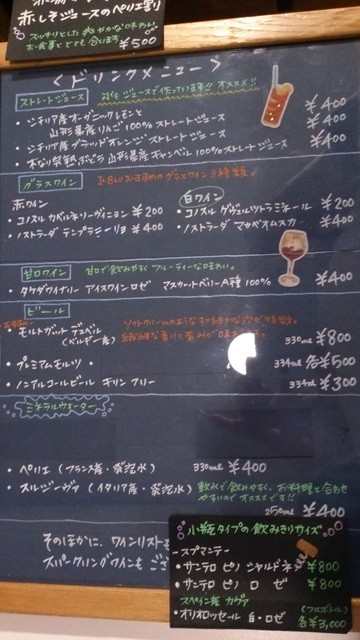 赤しそジュースのペリエ割
お食事ととても合います
¥500
＜ドリンクメニュー＞
ストレートジュース
オススメ!!
シチリア産オーガニックレモンと
山形県産りんご100%ストレートジュース
¥400
シチリア産ブラッドオレンジストレートジュース
¥400
山形県産キャンベル100%ストレートジュース
¥400
グラスワイン
おすすめのグラスワイン3種類
赤ワイン
白ワイン
・コノスル カベルネソーヴィニヨン ¥200
・コノスル ゲヴュルツトラミネール ¥200
・ノストラーダ テンプラニーリョ ¥400
・ノストラーダ マカベオ ¥400
甘口で飲みやすく フルーティーな味わい。
・タケダワイナリー アイスワインロゼ マスカットベリーA種 100%
¥400
ビール
(ベルギー産)
330ml ¥800
・プレミアムモルツ
334ml 各¥500
・ノンアルコールビール キリン フリー
334ml ¥300
ミネラルウォーター
・ペリエ (フランス産・発泡水) 330ml ¥400
・スルジーヴァ (イタリア産・発泡水)
軟水で飲みやすく、お料理と合わせ
やすいのでオススメです!!
250ml ¥400
そのほかに、ワインリスト
スパークリングワインも
小瓶タイプの飲みきりサイズ
ースプマンテー
・サンテロ ピノ シャルドネ ¥800
・サンテロ ピノ ロゼ ¥800
スペイン産 カヴァ
(フルボトル)
・オリオロッセール 白・ロゼ 各¥3,000